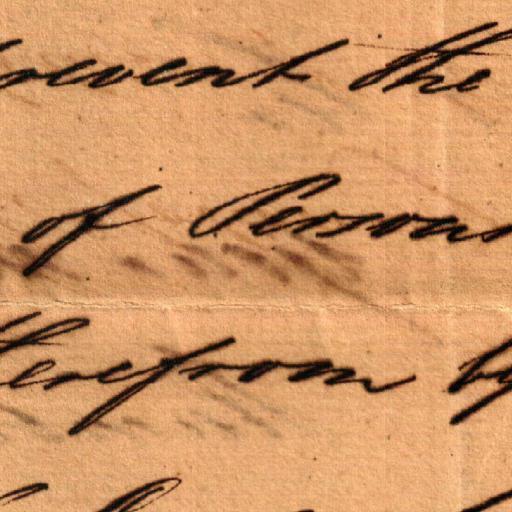 prevent the
of Persons
therefrom by